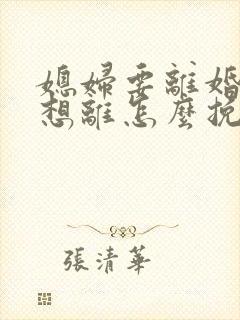 媳婦要離婚
想離怎麼挽
張清華